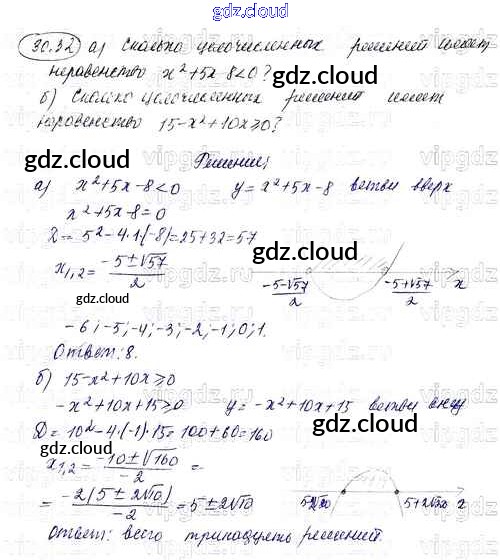 gdz.cloud
30.32 а) Сколько целочисленных решений имеет
неравенство x²+5x-8<0?
gdz.cloud
б) Сколько целочисленных решений имеет
неравенство 15-x²+10x≥0?
gdz.cloud
Решение:
а) x²+5x-8<0 y=x²+5x-8 ветви вверх
x²+5x-8=0
gdz.cloud
D=5²-4·1·(-8)=25+32=57
gdz.cloud
x1,2=(-5±√57)/2
(-5-√57)/2 (-5+√57)/2 x
gdz.cloud
-6;-5;-4;-3;-2;-1;0;1.
Ответ: 8.
gdz.cloud
б) 15-x²+10x≥0
-x²+10x+15≥0 y=-x²+10x+15 ветви вниз
D=10²-4·(-1)·15=100+60=160
gdz.cloud
x1,2=(-10±√160)/-2=
=-2(5±2√10)/-2=5±2√10
x
gdz.cloud
Ответ: всего тринадцать решений.
gdz.cloud